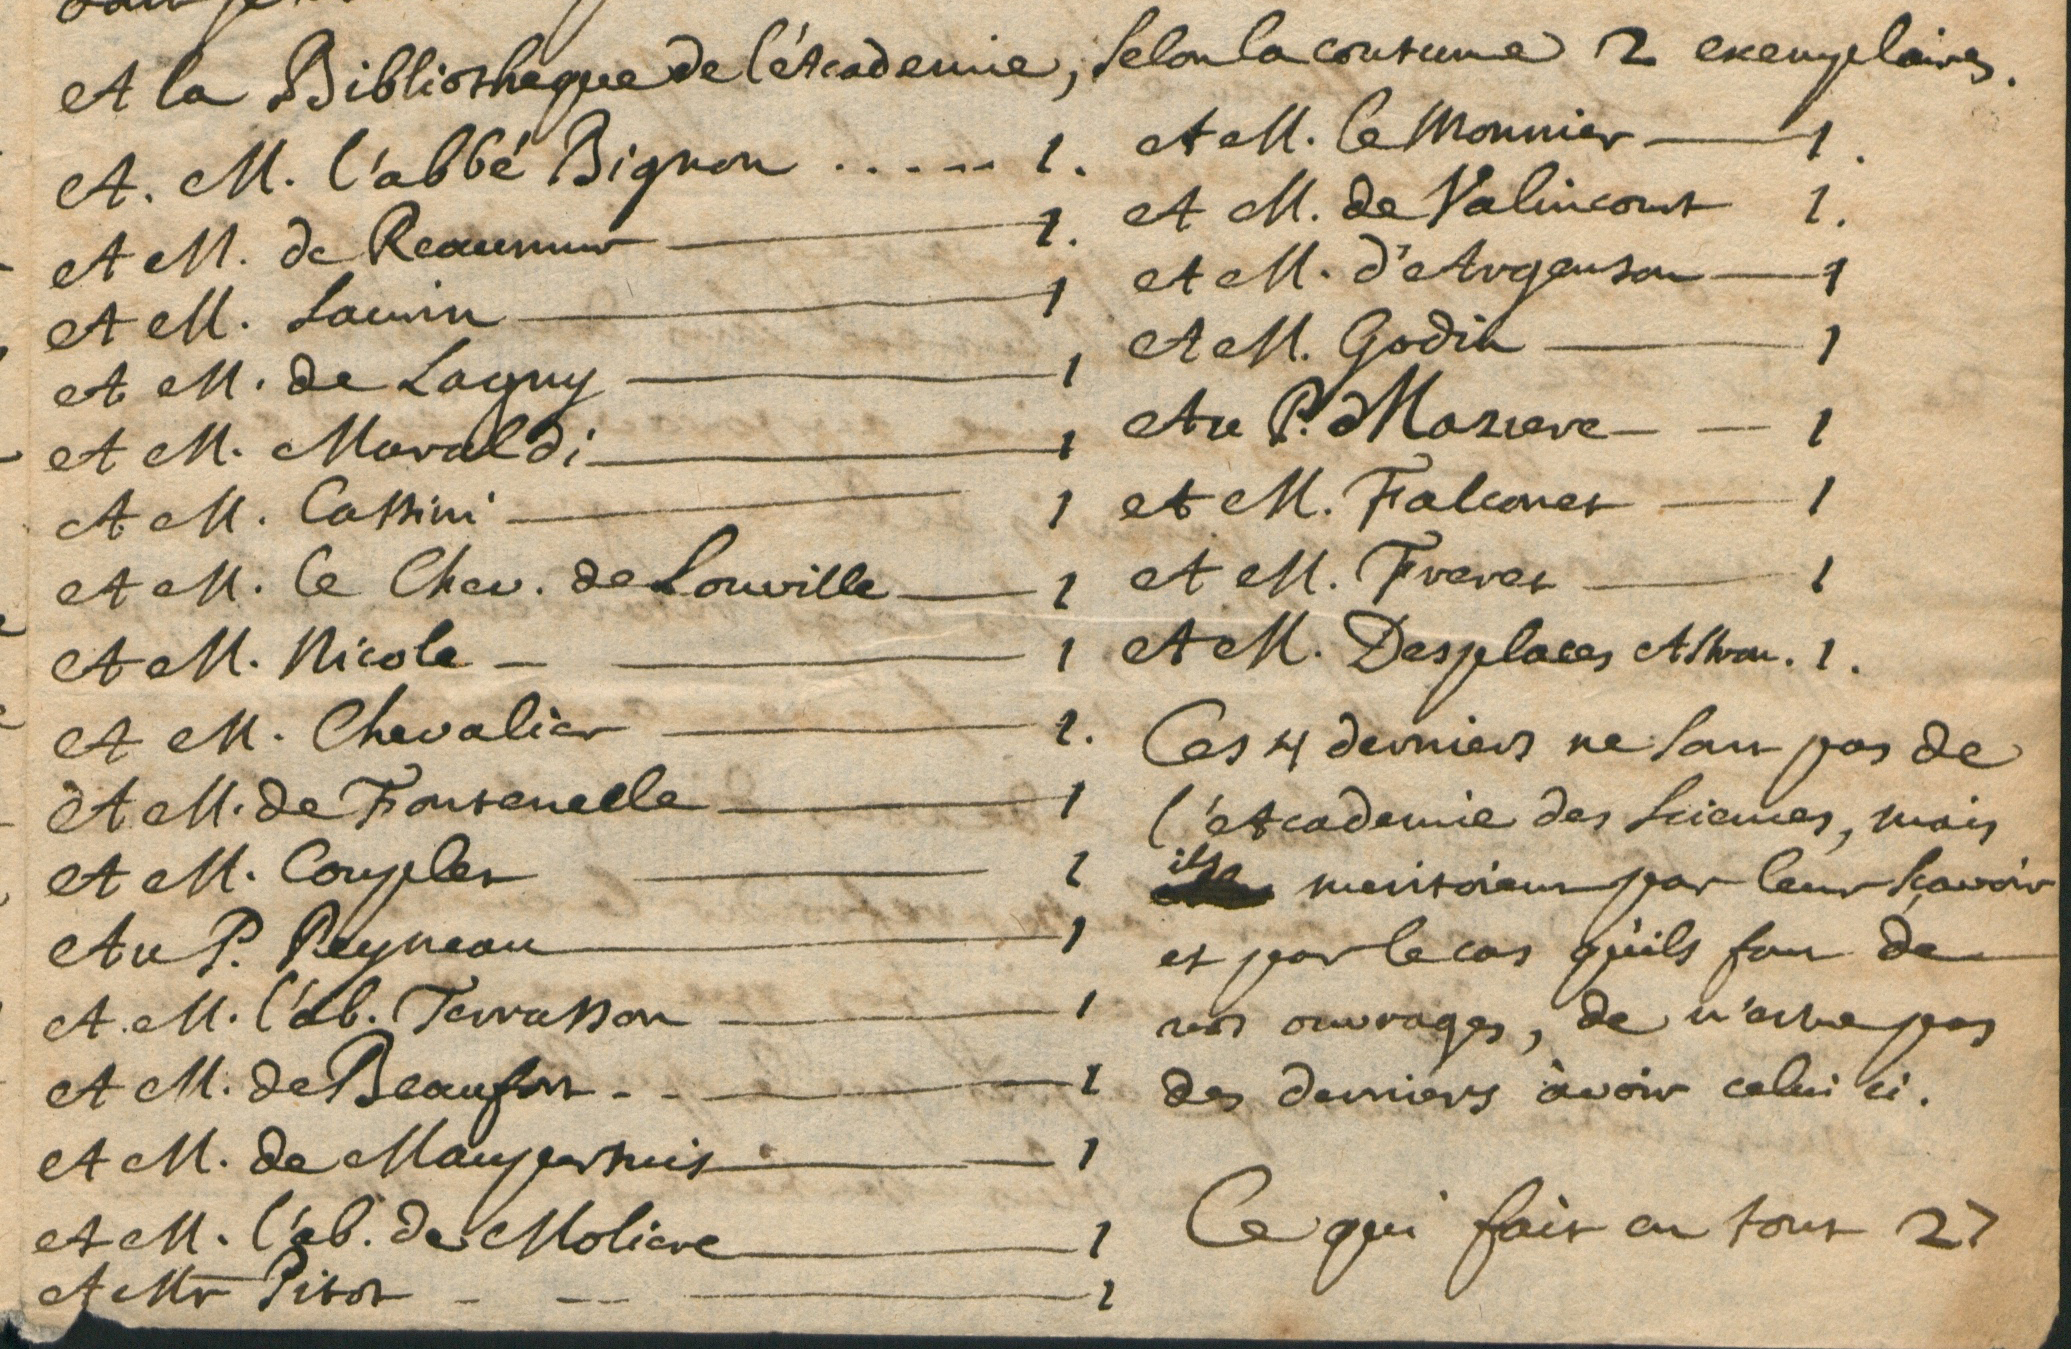 A la Bibliotheque de l'Academie, selon la coutume 2 exemplaires.
A. M. l'abbé Bignon ..... 1.
A M. de Reaumur 1.
A M. Saurin 1
A M. de Lagny 1
A M. Maraldi 1
A M. Cassini 1
A M. le Chev. de Louville 1
A M. Nicole 1
A M. Chevalier 1.
A M. de Fontenelle 1
A M. Couplet 1
Au P. Reyneau 1
A M. l'ab. Terrasson 1
A M. de Beaufort 1
A M. de Maupertuis 1
A M. l'ab. de Moliere 1
A Mr Pitot 1
A M. le Monnier 1.
A M. de Valincourt 1.
A M. d'Argenson 1
A M. Godin 1
Au P. Maziere 1
A M. Falconet 1
A M. Freret 1
A M. Desplaces Astron. 1.
Ces 4 derniers ne sont pas de
l'Academie des Sciences, mais
ils meritoient par leur sçavoir
et par le cas qu'ils font de
vos ouvrages, de n'estre pas
des derniers àvoir celui ci.
Ce qui fait en tout 27